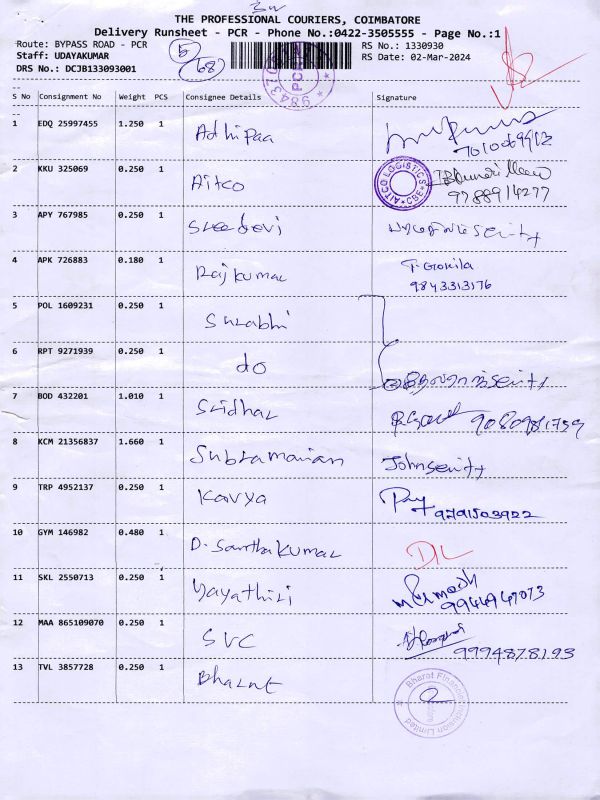 THE PROFESSIONAL COURIERS, COIMBATORE
Delivery Runsheet - PCR - Phone No.:0422-3505555 - Page No.:1
Route: BYPASS ROAD - PCR RS No.: 1330930
Staff: UDAYAKUMAR RS Date: 02-Mar-2024
DRS No.: DCJB133093001
5
68
S No Consignment No Weight PCS Consignee Details Signature
1 EDQ 25997455 1.250 1 Adhipaa
2 KKU 325069 0.250 1 Aitco 9788914277
AITCO LOGISTICS CBE
3 APY 767985 0.250 1 Sreedevi
4 APK 726883 0.180 1 Rajkumar T. Gokila
9843313176
5 POL 1609231 0.250 1 Surabhi
6 RPT 9271939 0.250 1 do
7 BOD 432201 1.010 1 Sridhar
8 KCM 21356837 1.660 1 Subramanian John Serity
9 TRP 4952137 0.250 1 Kavya 9791503922
10 GYM 146982 0.480 1 D. Santhakumar DL
11 SKL 2550713 0.250 1 Yayathiri
12 MAA 865109070 0.250 1 SVC 9994878193
13 TVL 3857728 0.250 1 Bharat
Bharat Financial Inclusion Limited